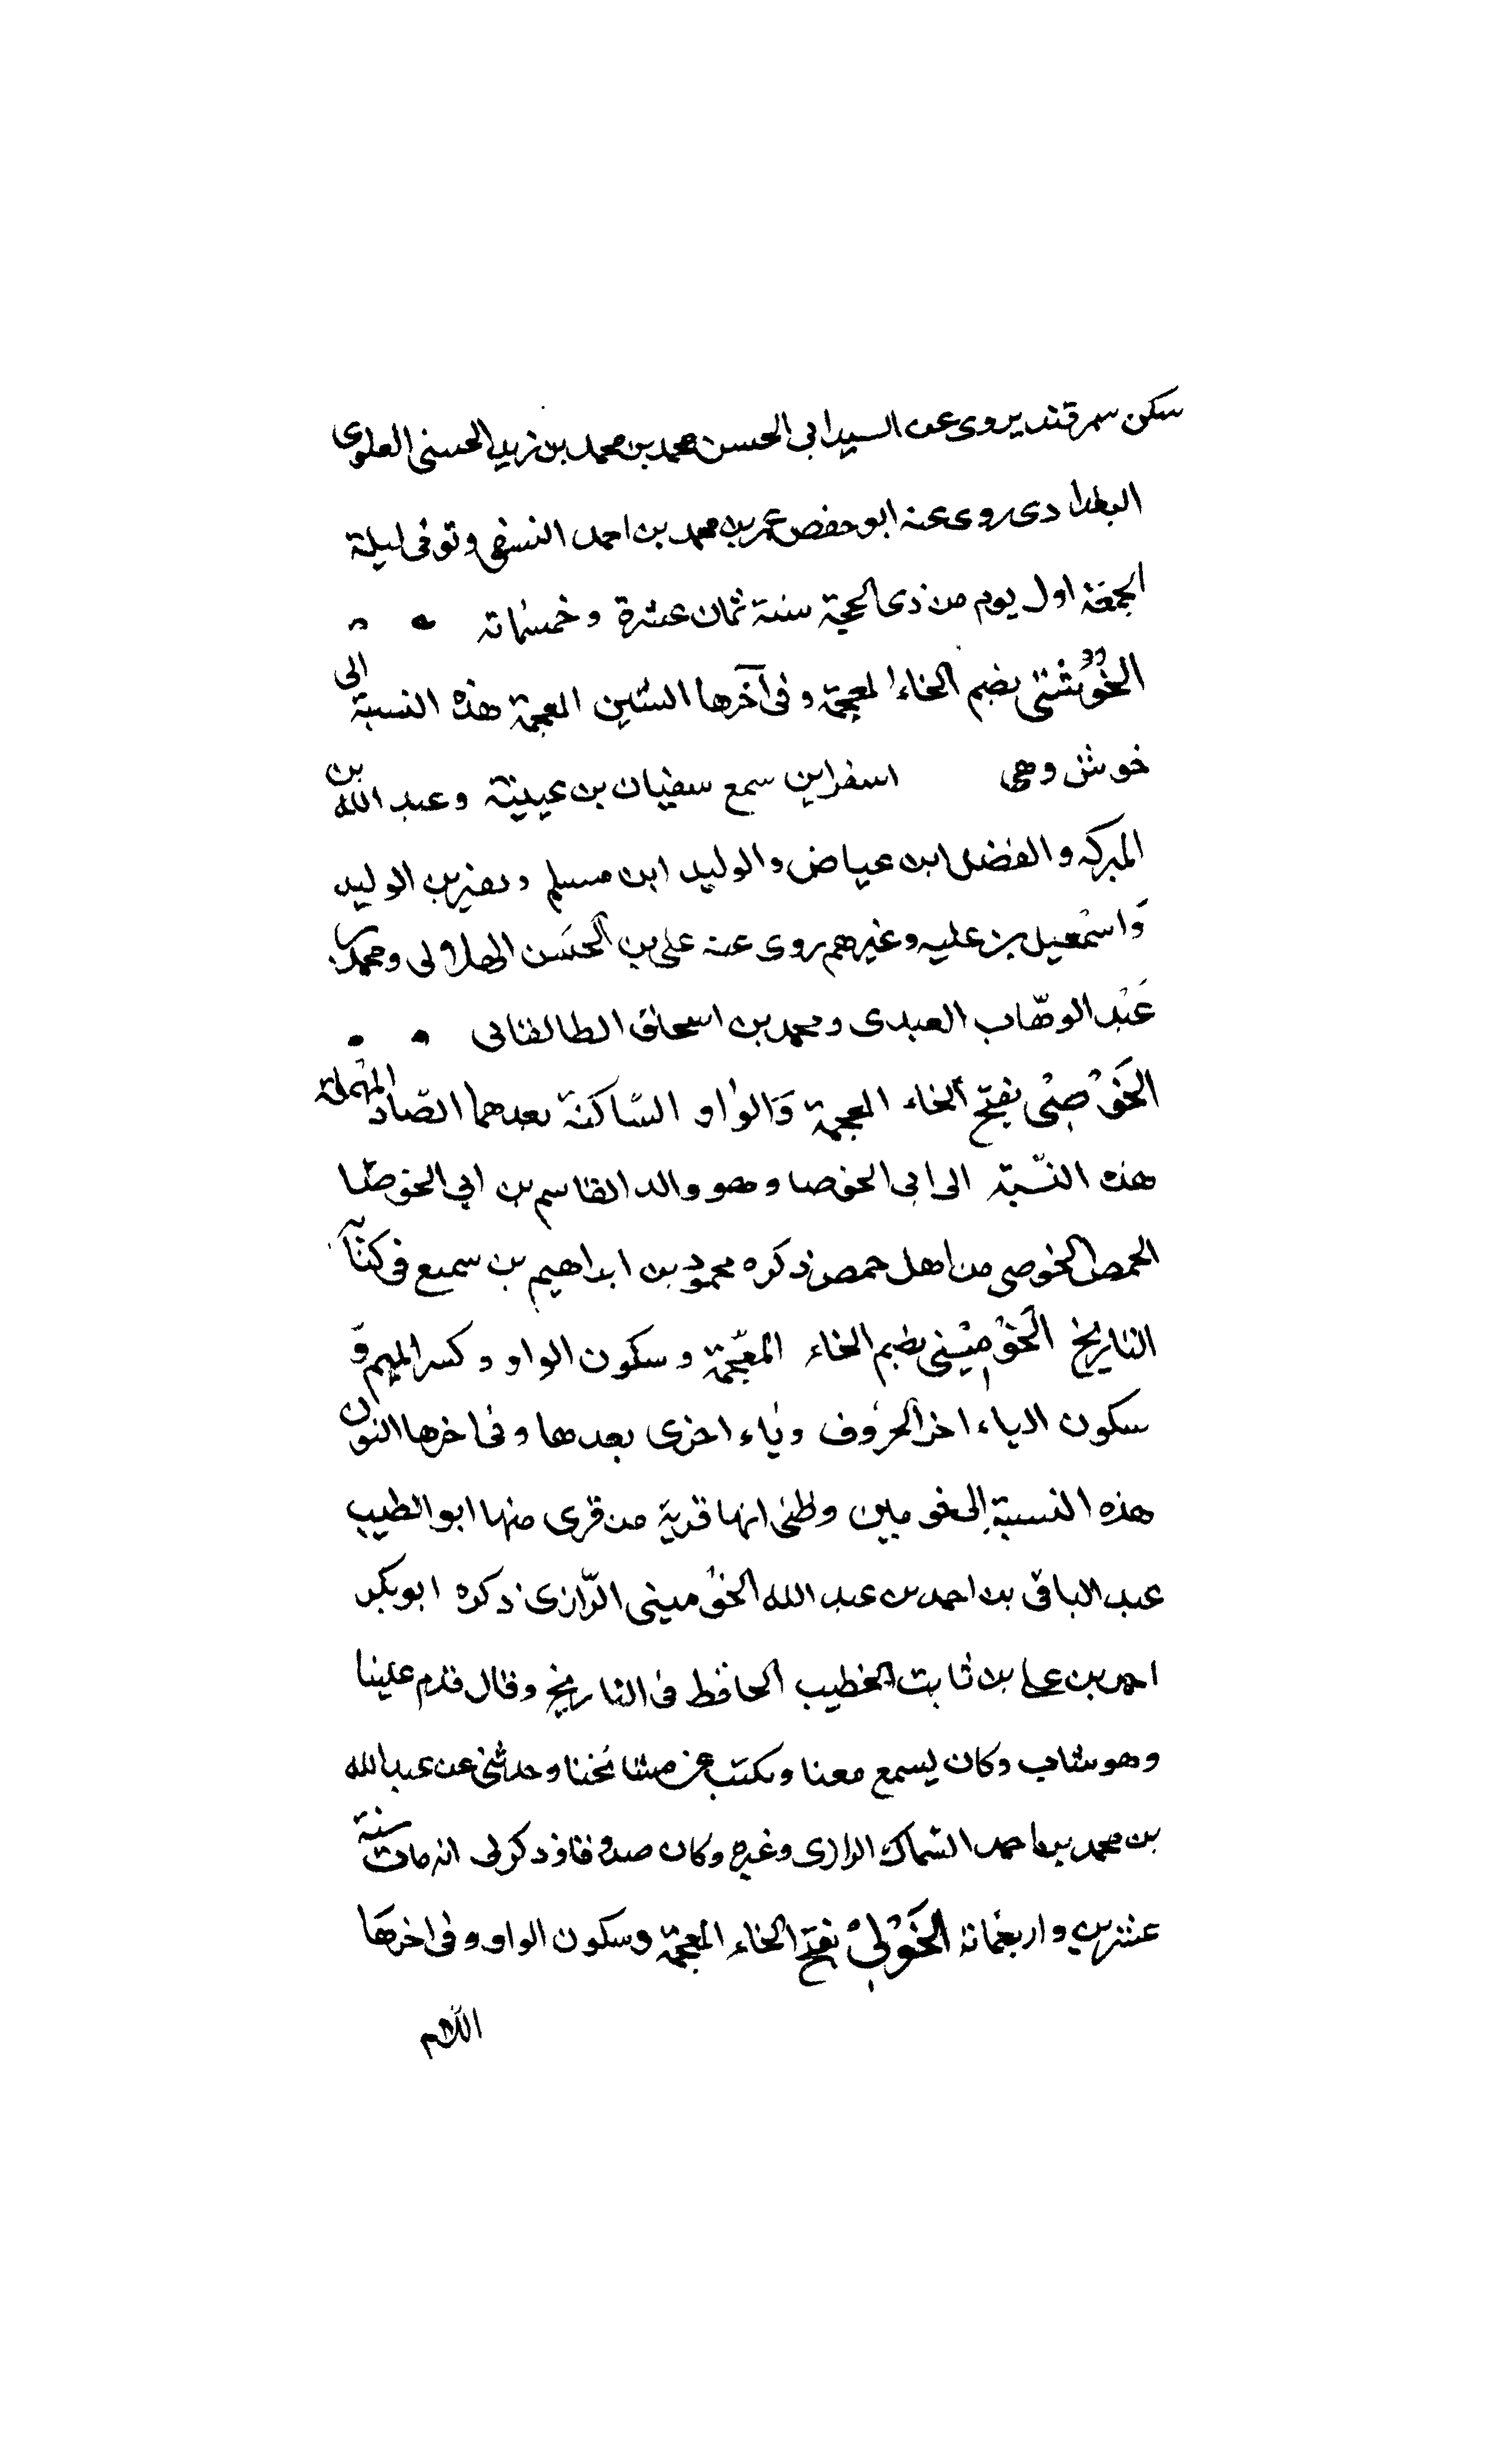 سكن سمرقند يروى عن السيد ابى الحسن محمد بن محمد بن زيد الحسنى العلوى
البغدادى روى عنه ابو حفص عمر بن محمد بن احمد النسفى وتوفى ليلة
الجمعة اول يوم من ذى الحجة سنة ثمان عشرة وخمسمائة
الخُوْشىّ بضم الخاء المعجمة وفى آخرها الشين المعجمة هذه النسبة الى
خوش وهى اسفراين سمع سفيان بن عيينة وعبد الله بن
المبركه والفضل ابن عياض والوليد ابن مسلم وبن الوليد
وَاسْمعيل بن عليه وغيرهم روى عنه على بن الحسَن الهلالى ومحمد بن
عَبْد الوهّاب العبدى ومحمد بن اسحاق الطالقانى
الخَوْصِىْ بفتح الخاء المعجمة وَالواو السّاكنة بعدهما الصّاد المهملة
هذه النسّبة الى ابى الخوصا وهو والد القاسم بن ابى الخوصا
الحمصى الخوصى من اهل حمص ذكره محمود بن ابراهيم بن سميع فى كتاب
التاريخ الخُوْمِيْنى بضم الخاء المعجّمة وسكون الواو وكسر الميم وَ
سكون الياء اخر الحرُوف وياء اخرى بعدها وفى اخرها النون
هذه النسبة الى خومين وظنى انها قرية من قرى منها ابو الطيب
عبد الباقى بن احمد بن عبد الله الخوْمينى الرّازى ذكره ابو بكر
احمد بن على بن ثابت الخطيب الحافظ فى التاريخ وقال قدم علينا
وهو شاب وكان يسمع معنا ويكتب عن مشائخنا وحدثنى عن عبد الله
بن محمد بن احمد السّماك الرازى وغيره وكان صدوقا وذكر لى انه مات سنة
عشرين واربعمائة الخَوْلِىْ بفتح الخاء المعجمة وسكون الواو وفى اخرهَا
اللام